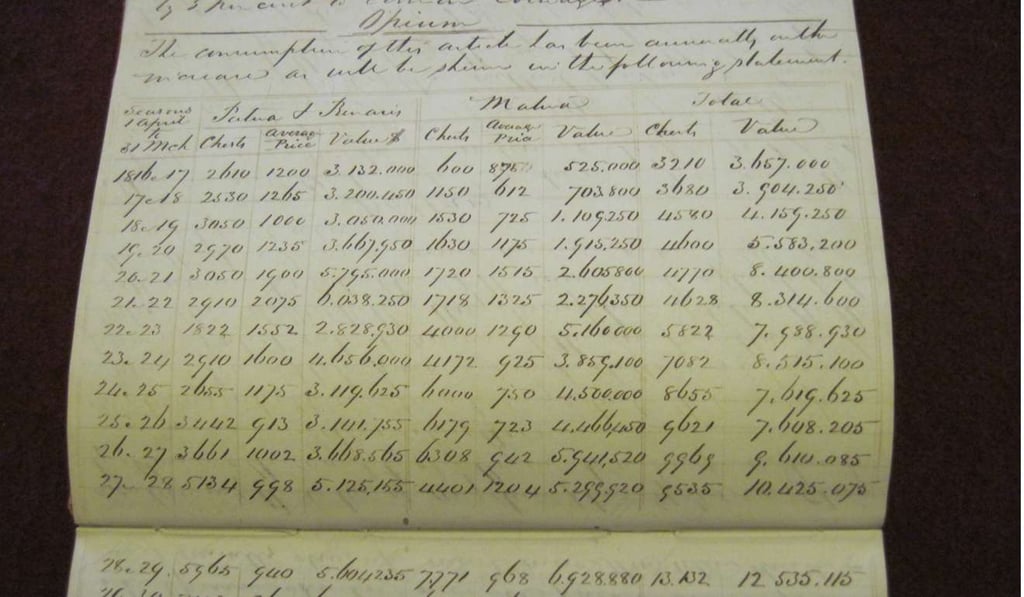 by 5 per cent
Opium
The consumption of this article has been annually on the
increase as will be shewn in the following statement.
Seasons Patna & Benaris Malwa Total
1 April
to Chests Average Value $ Chests Average Value Chests Value
31 Mch Price Price
1816..17 2610 1200 3.132.000 600 875 525.000 3210 3.657.000
17..18 2530 1265 3.200.450 1150 612 703.800 3680 3.904.250
18..19 3050 1000 3.050.000 1530 725 1.109.250 4580 4.159.250
19..20 2970 1235 3.667.950 1630 1175 1.915.250 4600 5.583.200
20..21 3050 1900 5.795.000 1720 1515 2.605800 4770 8.400.800
21..22 2910 2075 6.038.250 1718 1325 2.276,350 4628 8.314.600
22..23 1822 1552 2.828,930 4000 1290 5.160000 5822 7.988.930
23..24 2910 1600 4.656,000 4172 925 3.859,100 7082 8.515.100
24..25 2655 1175 3.119,625 6000 750 4.500.000 8655 7.619.625
25..26 3442 913 3.141.755 6179 723 4.466,450 9621 7.608.205
26..27 3661 1002 3.668.565 6308 942 5.941,520 9969 9.610.085
27..28 5134 998 5.125,155 4401 1204 5.299,920 9535 10.425.075
28..29 5965 940 5.604235 7771 968 6.928.880 13.132 12 535.115